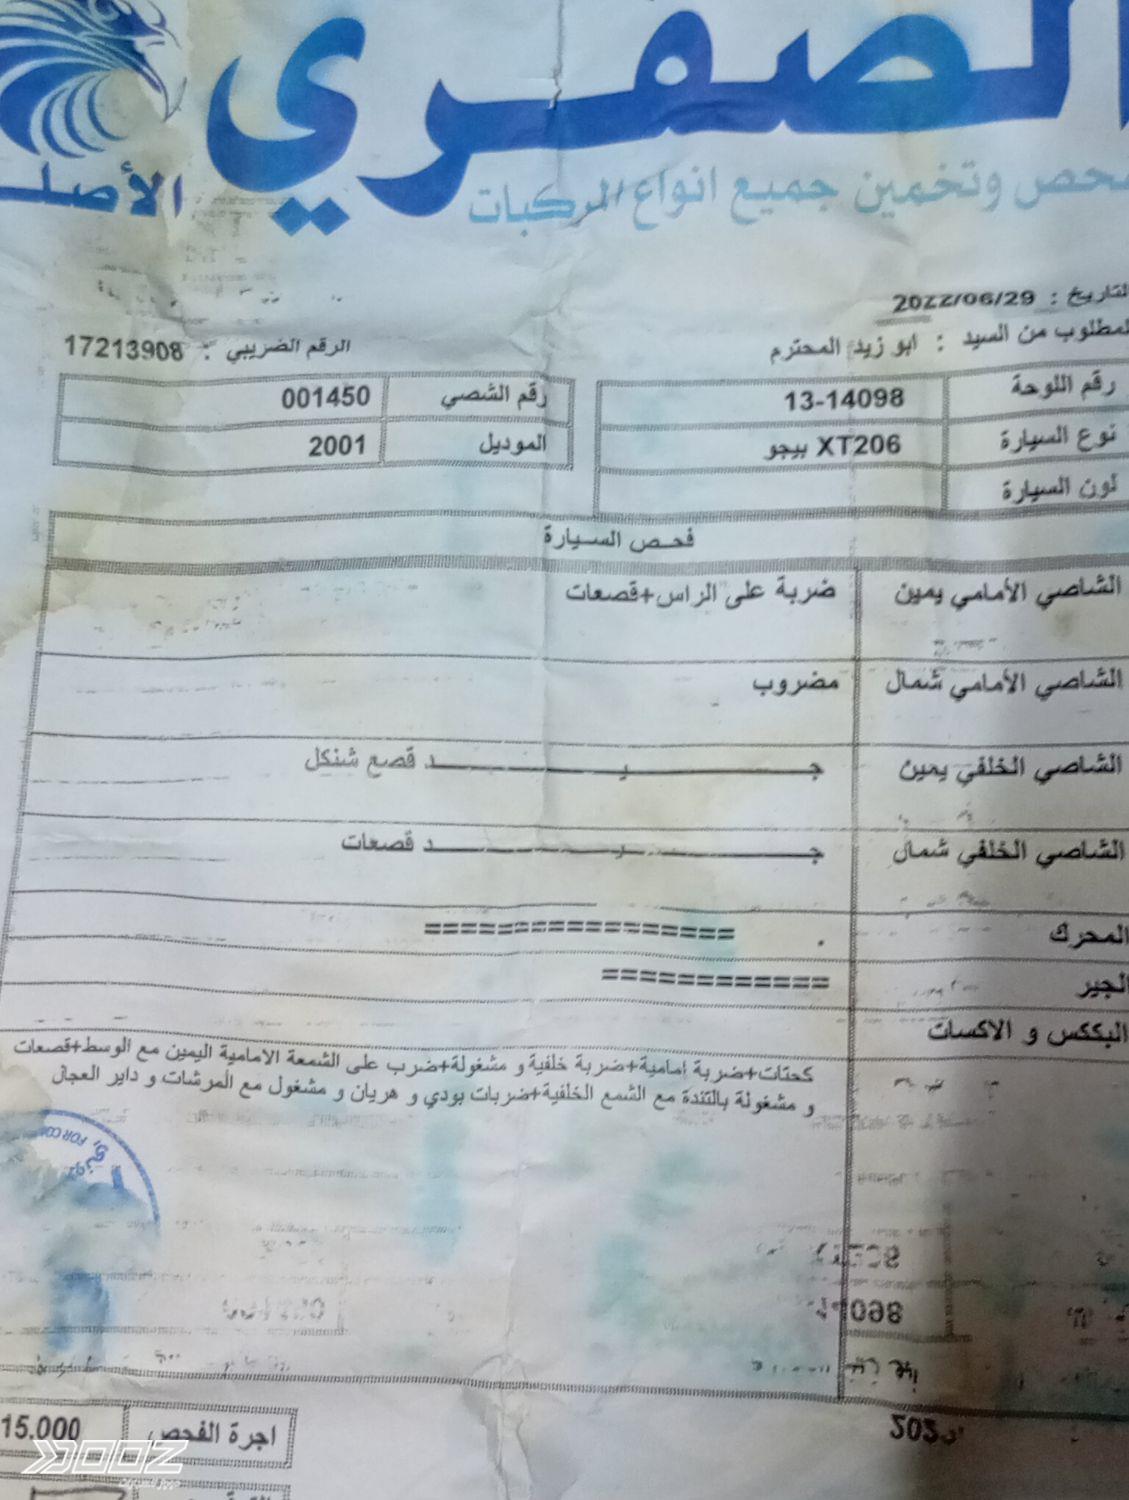 الصفري
الأصلـ
فحص وتخمين جميع انواع المركبات
التاريخ : 2022/06/29
المطلوب من السيد : ابو زيد المحترم
الرقم الضريبي : 17213908
رقم اللوحة 13-14098
رقم الشصي 001450
نوع السيارة XT206 بيجو
الموديل 2001
لون السيارة
فحص السيارة
الشاصي الأمامي يمين ضربة على الراس+قصعات
الشاصي الأمامي شمال مضروب
الشاصي الخلفي يمين جـــيـــد قصع شنكل
الشاصي الخلفي شمال جـــيـــد قصعات
المحرك =================
الجير ============
البككس و الاكسات
كحتات+ضربة إمامية+ضربة خلفية و مشغولة+ضرب على الشمعة الامامية اليمين مع الوسط+قصعات
و مشغولة بالتندة مع الشمع الخلفية+ضربات بودي و هريان و مشغول مع المرشات و داير العجال
FOR COM
اجرة الفحص 15.000
DOOZ